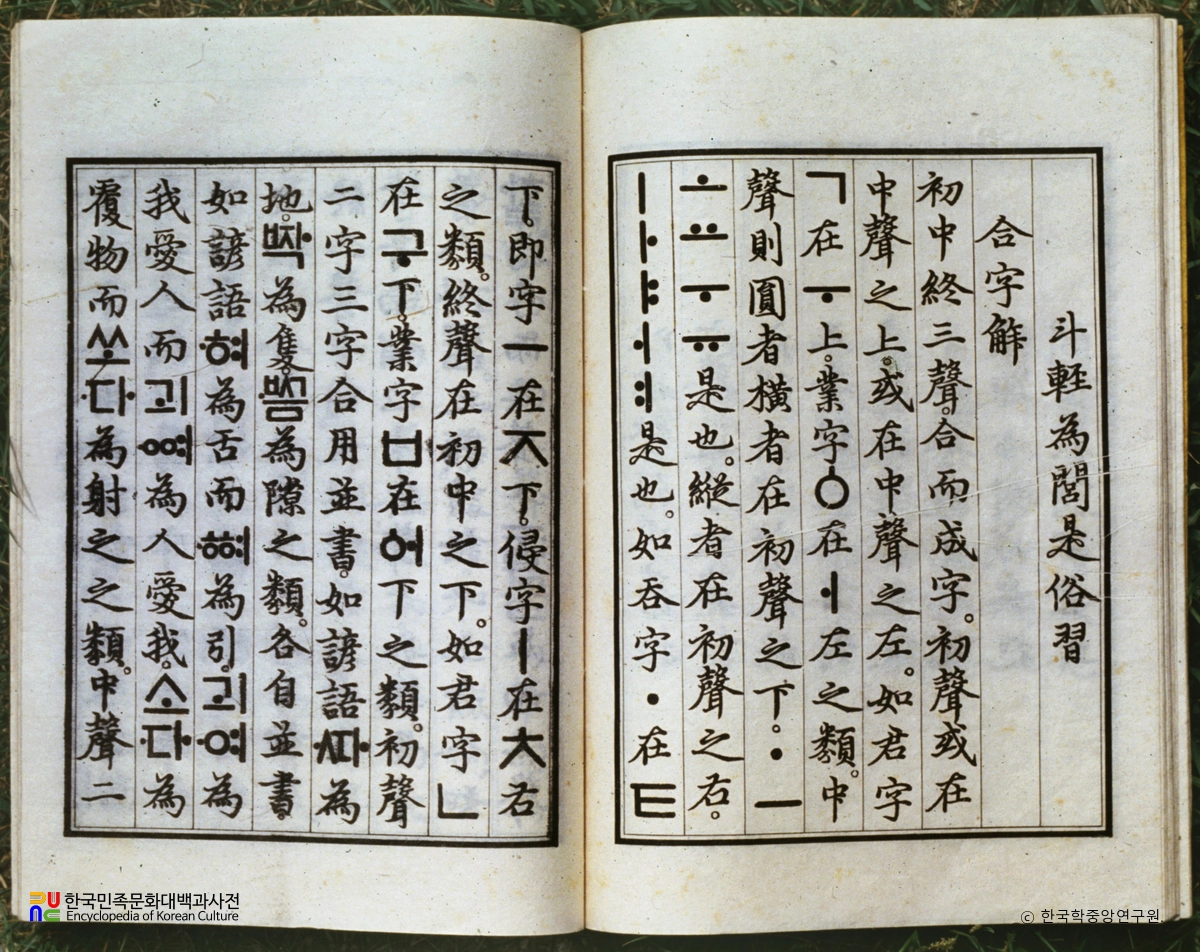 斗輕為閭是俗習
合字解
初中終三聲。合而成字。初聲或在
中聲之上。或在中聲之左。如君字
ㄱ在ㅜ上。業字ㆁ在ㅓ左之類。中
聲則圓者橫者在初聲之下。ㆍㅡ
ㅗㅛㅜㅠ是也。縱者在初聲之右。
ㅣㅏㅑㅓㅕ是也。如呑字ㆍ在ㅌ
下。即字ㅡ在ㅈ下。侵字ㅣ在ㅊ右
之類。終聲在初中之下。如君字ㄴ
在구下。業字ㅂ在ᅌᅥ下之類。初聲
二字三字合用並書。如諺語ᄯᅡ為
地。ᄧᅡᆨ為隻。ᄢᅳᆷ為隙之類。各自並書。
如諺語혀為舌而ᅘᅧ為引。괴여為
我愛人而괴ᅇᅧ為人愛我。소다為
覆物而쏘다為射之之類。中聲二
한국민족문화대백과사전
Encyclopedia of Korean Culture
© 한국학중앙연구원